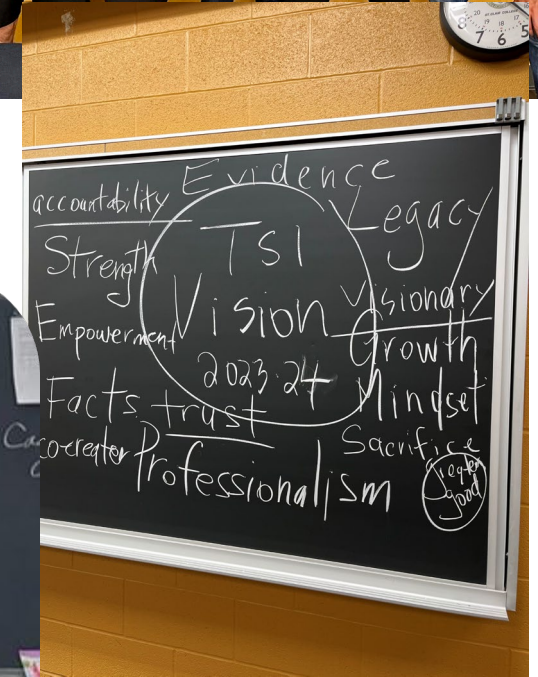 Evidence
accountability
Legacy
Strength
TSI
Vision
2023-24
Visionary
Empowerment
Growth
Mindset
Facts
trust
Sacrifice
co-creater
Professionalism
greater
good
20 19 18 17
8 7 6 5